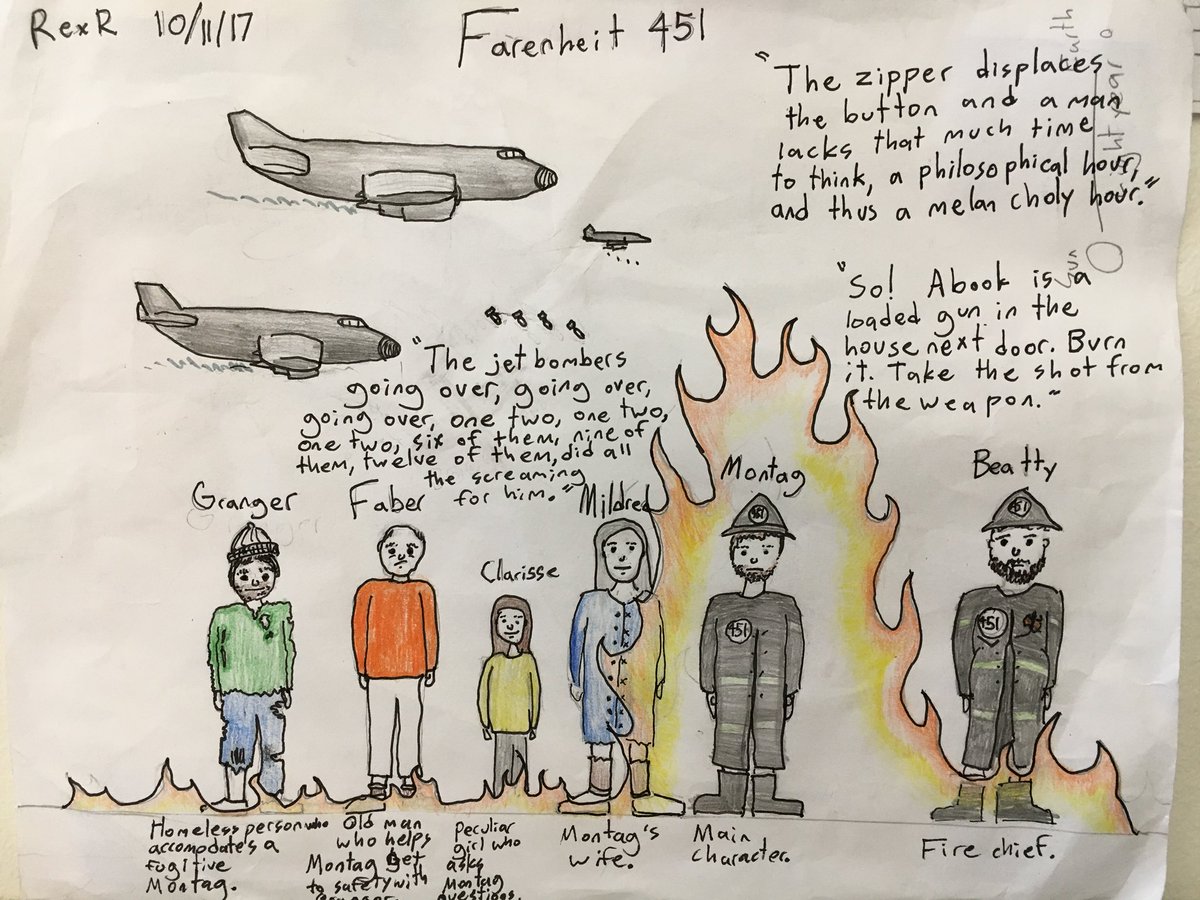 RexR 10/11/17
Farenheit 451
"The zipper displaces
the button and a man
lacks that much time
to think, a philosophical hour,
and thus a melan choly hour."
"So! A book is a
loaded gun in the
house next door. Burn
it. Take the shot from
the weapon."
"The jet bombers
going over, going over,
going over, one two, one two,
one two, six of them, nine of
them, twelve of them, did all
the screaming
for him."
Granger
Faber
Clarisse
Mildred
Montag
Beatty
451
451
451
451
Homeless person who
accomodate's a
fugitive
Montag.
Old man
who helps
Montag get
to safety with
Peculiar
girl who
asks
Montag
questions.
Montag's
wife.
Main
Character.
Fire chief.